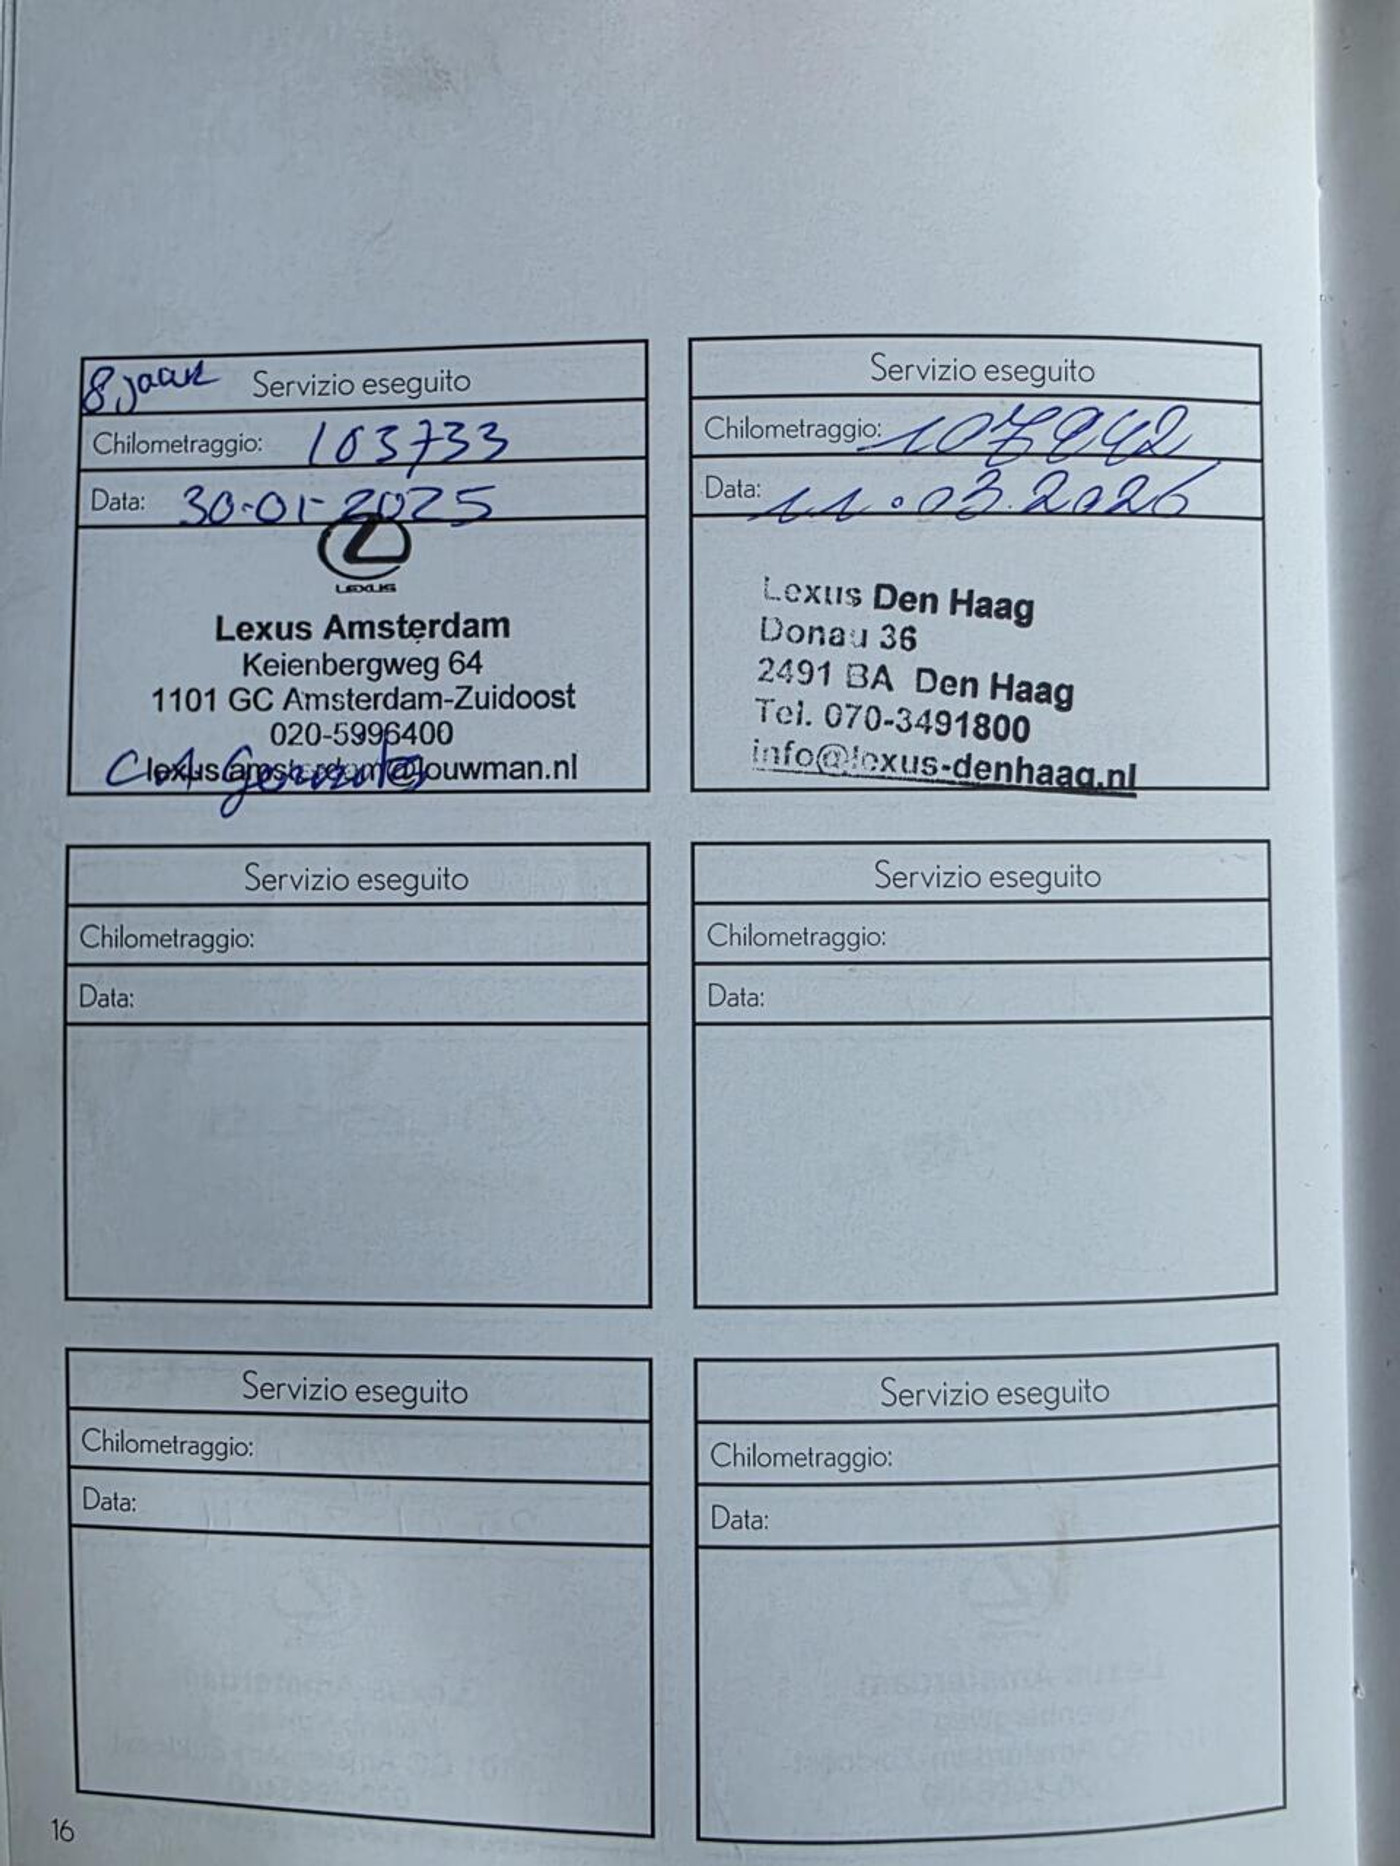 8 jaar Servizio eseguito
Chilometraggio: 103733
Data: 30-01-2025
LEXUS
Lexus Amsterdam
Keienbergweg 64
1101 GC Amsterdam-Zuidoost
020-5996400
lexus.amsterdam@louwman.nl
Servizio eseguito
Chilometraggio: 107942
Data: 11.03.2026
Lexus Den Haag
Donau 36
2491 BA Den Haag
Tel. 070-3491800
info@lexus-denhaag.nl
Servizio eseguito
Chilometraggio:
Data:
Servizio eseguito
Chilometraggio:
Data:
Servizio eseguito
Chilometraggio:
Data:
Servizio eseguito
Chilometraggio:
Data:
16